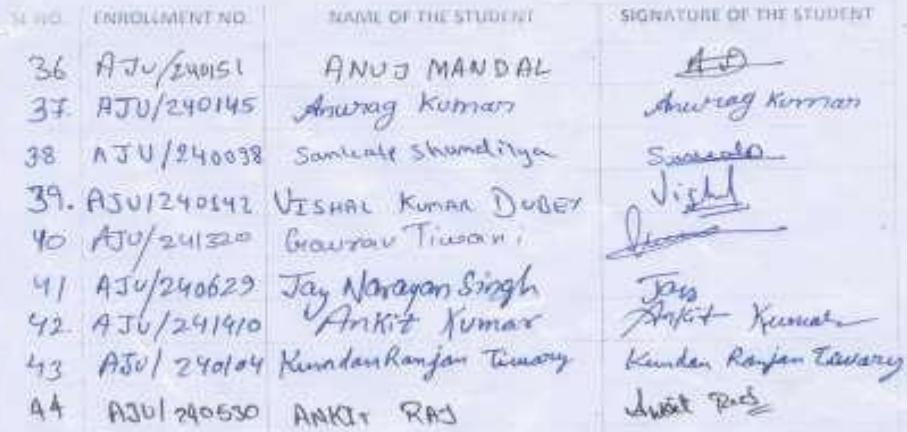 SL NO. ENROLLMENT NO. NAME OF THE STUDENT SIGNATURE OF THE STUDENT
36 AJU/240151 ANUJ MANDAL
37. AJU/240145 Anurag Kumar Anurag Kumar
38 AJU/240098 Shandilya
39. AJU/240142 VISHAL KUMAR DUBEY Vishal
40 AJU/241320 Gaurav Tiwari
41 AJU/240629 Jay Narayan Singh Jay
42. AJU/241410 Ankit Kumar Ankit Kumar
43 AJU/240104 Kundan Ranjan Tiwary Kundan Ranjan Tiwary
44 AJU/240530 ANKIT RAJ Ankit Raj